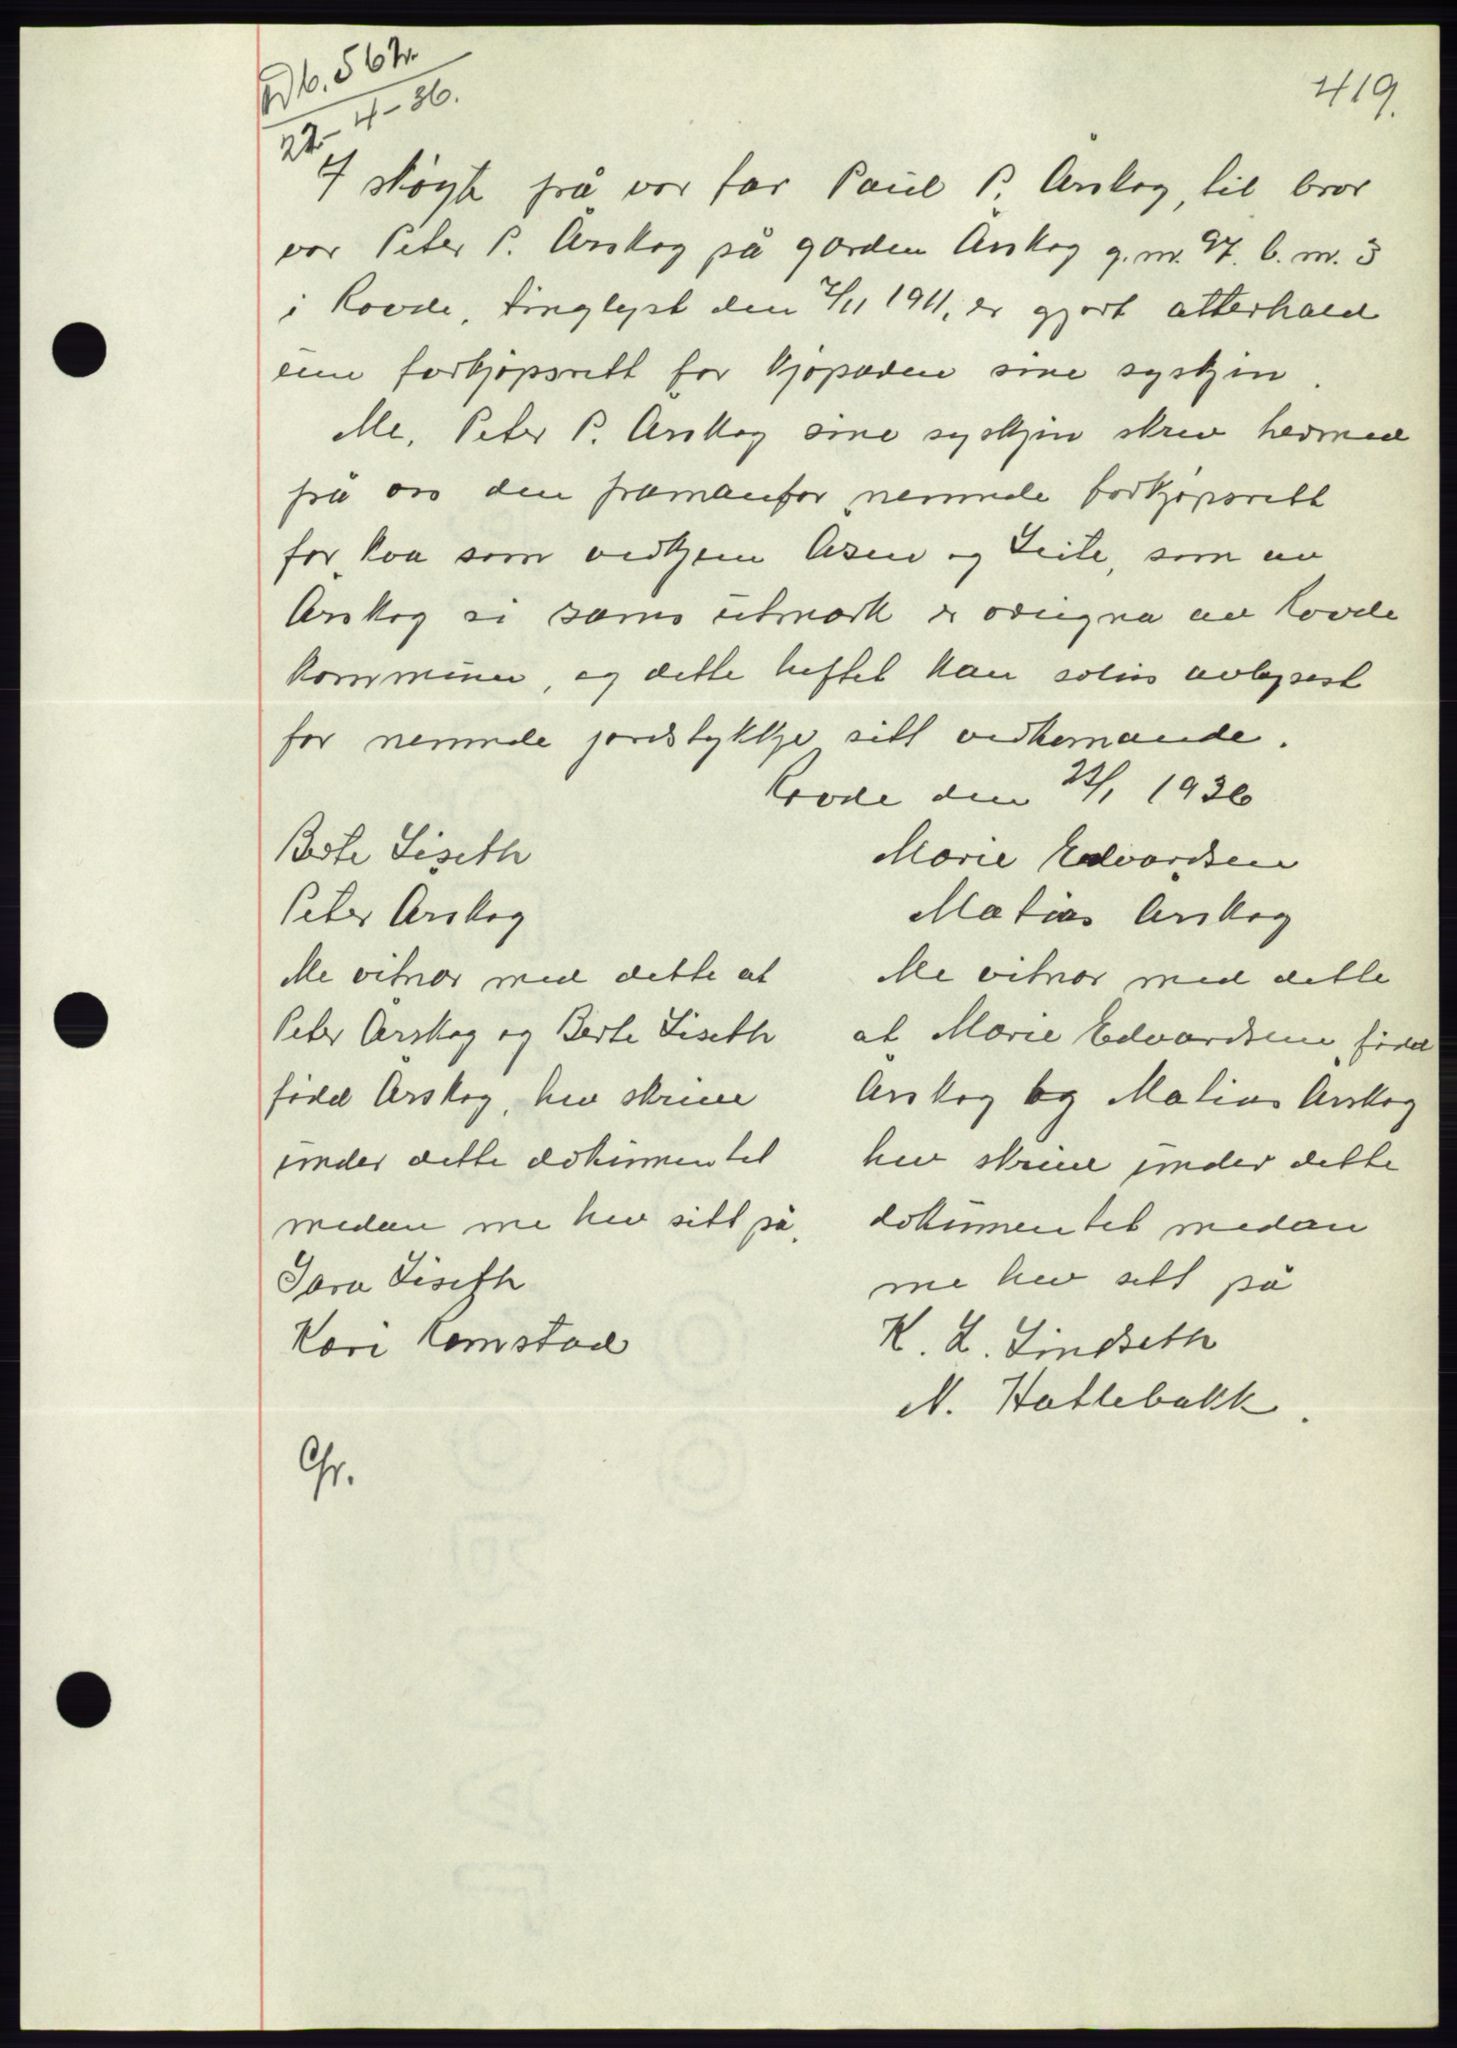 Db. 567.
22-4-36.
419.
I skøyte frå vor far Paul P. Årskog, til bror
vor Peter P. Årskog på garden Årskog g. nr. 97. b. nr. 3
i Rovde, tinglyst den 7/11 1911, er gjort atterhald
um forkjøpsrett for kjøparen sine syskjin.
Me, Peter P. Årskog sine syskjin skriv hermed
frå oss den framanfor nemnde forkjøpsrett
for kva som vedkjem Åsen og Leite, som av
Årskog si sams utmark er oreigna av Rovde
kommune, og dette heftet kan soleis avlysast
for nemnde jordstykkje sitt vedkomande.
Rovde den 22/1 1936
Berte Liseth
Peter Årskog
Me vitnar med dette at
Peter Årskog og Berte Liseth
fødd Årskog, hev skrive
under dette dokumentet
medan me hev sitt på.
Jara Liseth
Kari Ramstad
Marie Edvardsen
Matias Årskog
Me vitnar med dette
at Marie Edvardsen, fødd
Årskog og Matias Årskog
hev skrive under dette
dokumentet medan
me hev sett på
K. L. Lindseth
N. Hatlebakk.